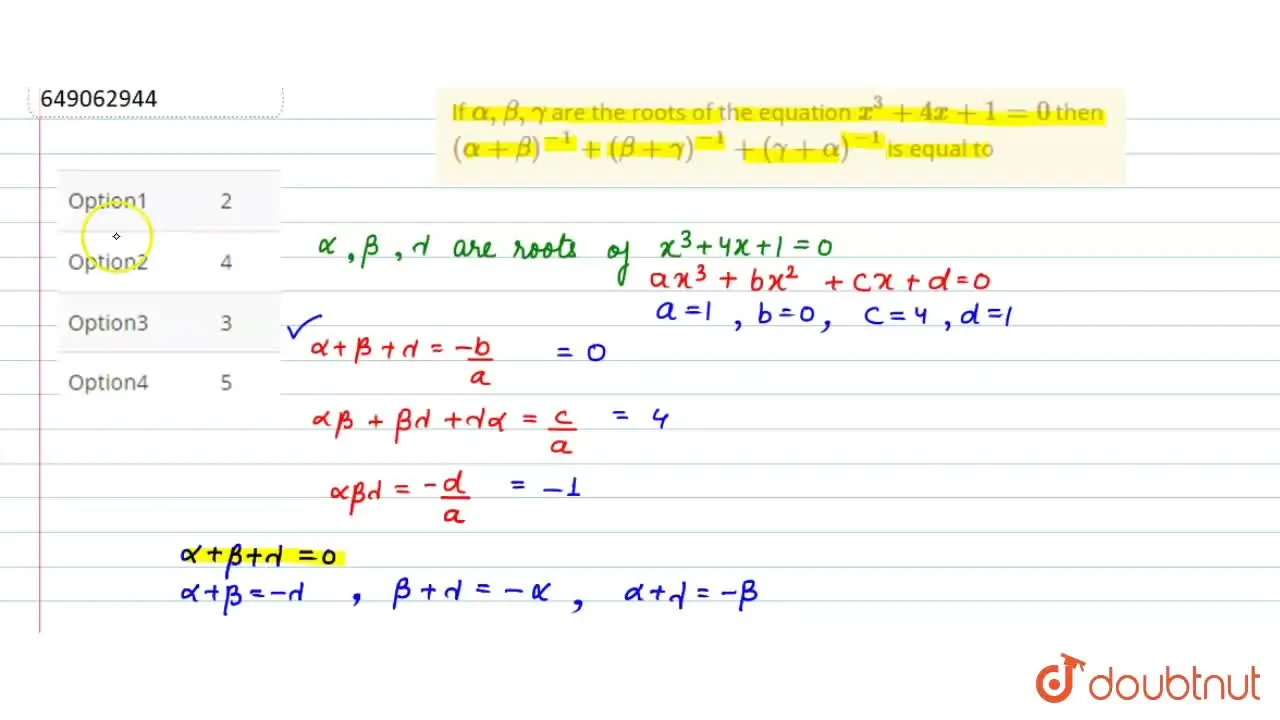 649062944
If α, β, γ are the roots of the equation x³ + 4x + 1 = 0 then
(α + β)⁻¹ + (β + γ)⁻¹ + (γ + α)⁻¹ is equal to
Option1 2
Option2 4
Option3 3
Option4 5
α, β, γ are roots of x³+4x+1=0
ax³ + bx² + cx + d=0
a=1, b=0, c=4, d=1
✓
α+β+γ = -b/a = 0
αβ + βγ + γα = c/a = 4
αβγ = -d/a = -1
α+β+γ=0
α+β=-γ, β+γ=-α, α+γ=-β
doubtnut